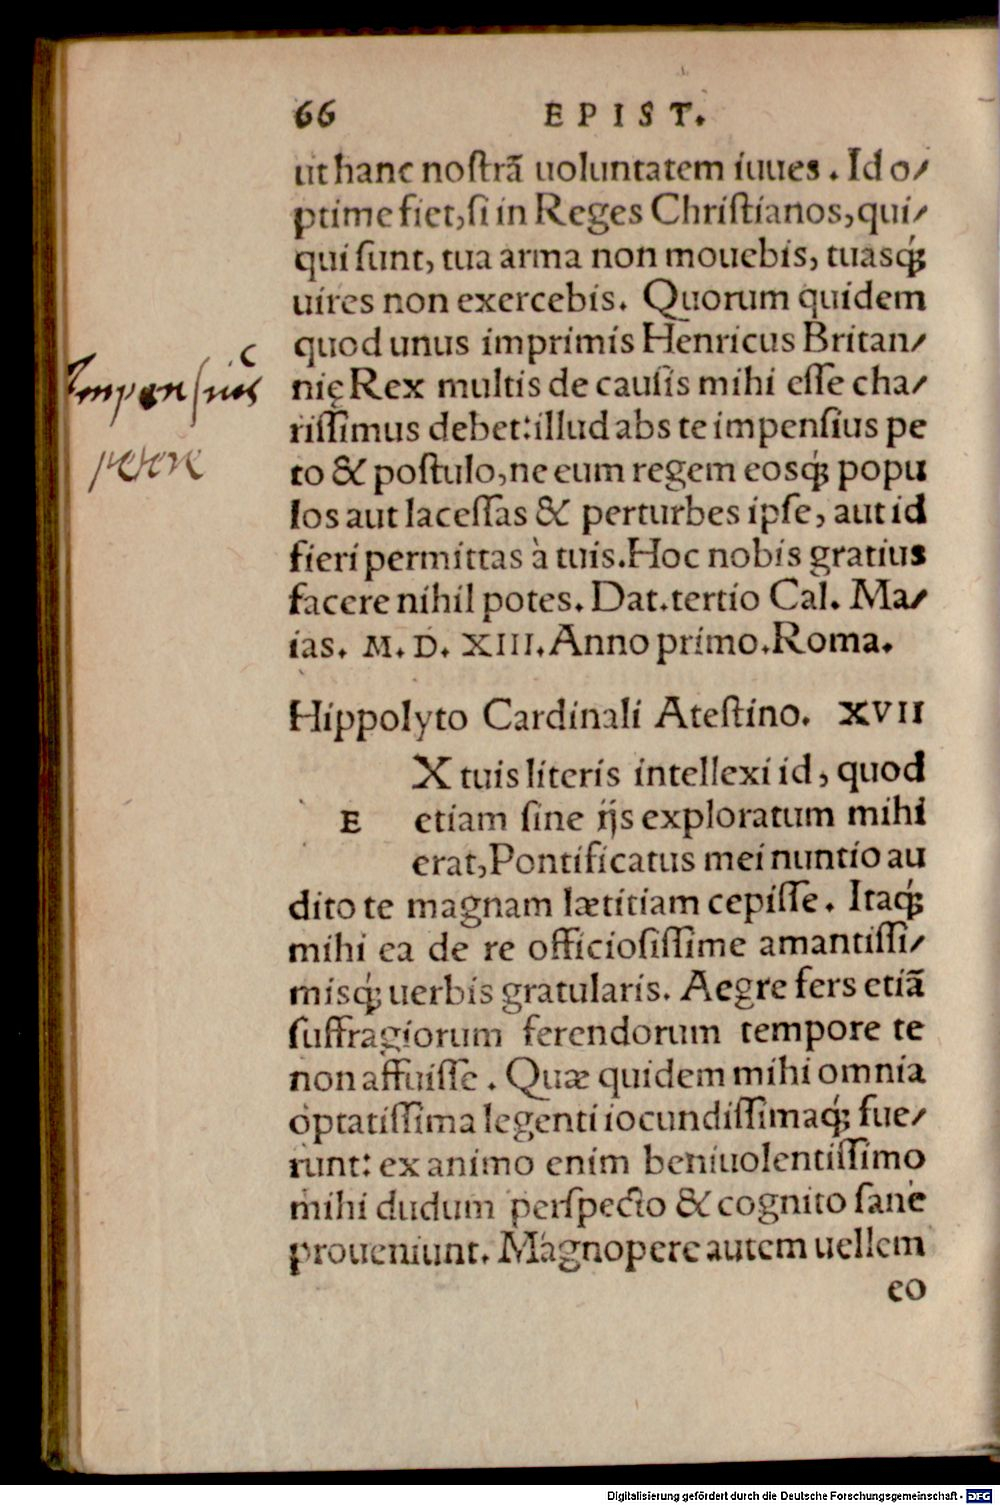 66 EPIST.
ut hanc nostrã uoluntatem iuues. Id o/
ptime fiet, si in Reges Christianos, qui/
qui sunt, tua arma non mouebis, tuasq́;
uires non exercebis. Quorum quidem
quod unus imprimis Henricus Britan/
nię Rex multis de causis mihi esse cha/
rissimus debet: illud abs te impensius pe
to & postulo, ne eum regem eosq́; popu
los aut lacessas & perturbes ipse, aut id
fieri permittas à tuis. Hoc nobis gratius
facere nihil potes. Dat. tertio Cal. Ma/
ias. M. D. XIII. Anno primo. Roma.
Impensius
petere
Hippolyto Cardinali Atestino. XVII
EX tuis literis intellexi id, quod
etiam sine ijs exploratum mihi
erat, Pontificatus mei nuntio au
dito te magnam lætitiam cepisse. Itaq́;
mihi ea de re officiosissime amantissi/
misq́; uerbis gratularis. Aegre fers etiã
suffragiorum ferendorum tempore te
non affuisse. Quæ quidem mihi omnia
optatissima legenti iocundissimaq́; fue/
runt: ex animo enim beniuolentissimo
mihi dudum perspecto & cognito sane
proueniunt. Magnopere autem uellem
eo
Digitalisierung gefördert durch die Deutsche Forschungsgemeinschaft - DFG